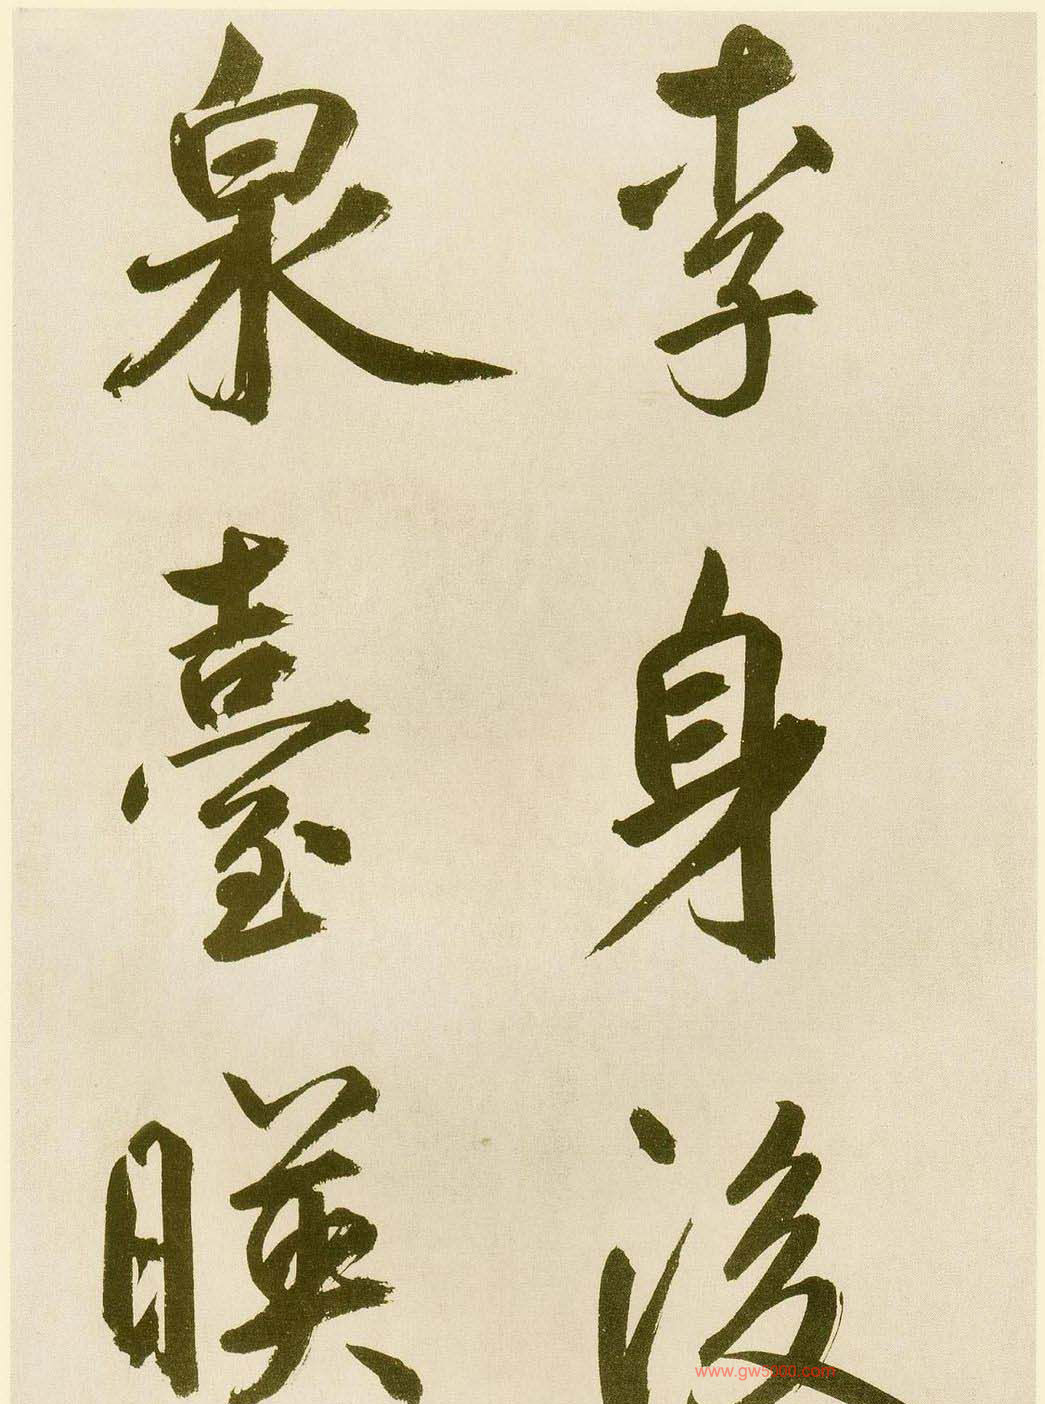 李身後
泉臺暎
www.gw5000.com